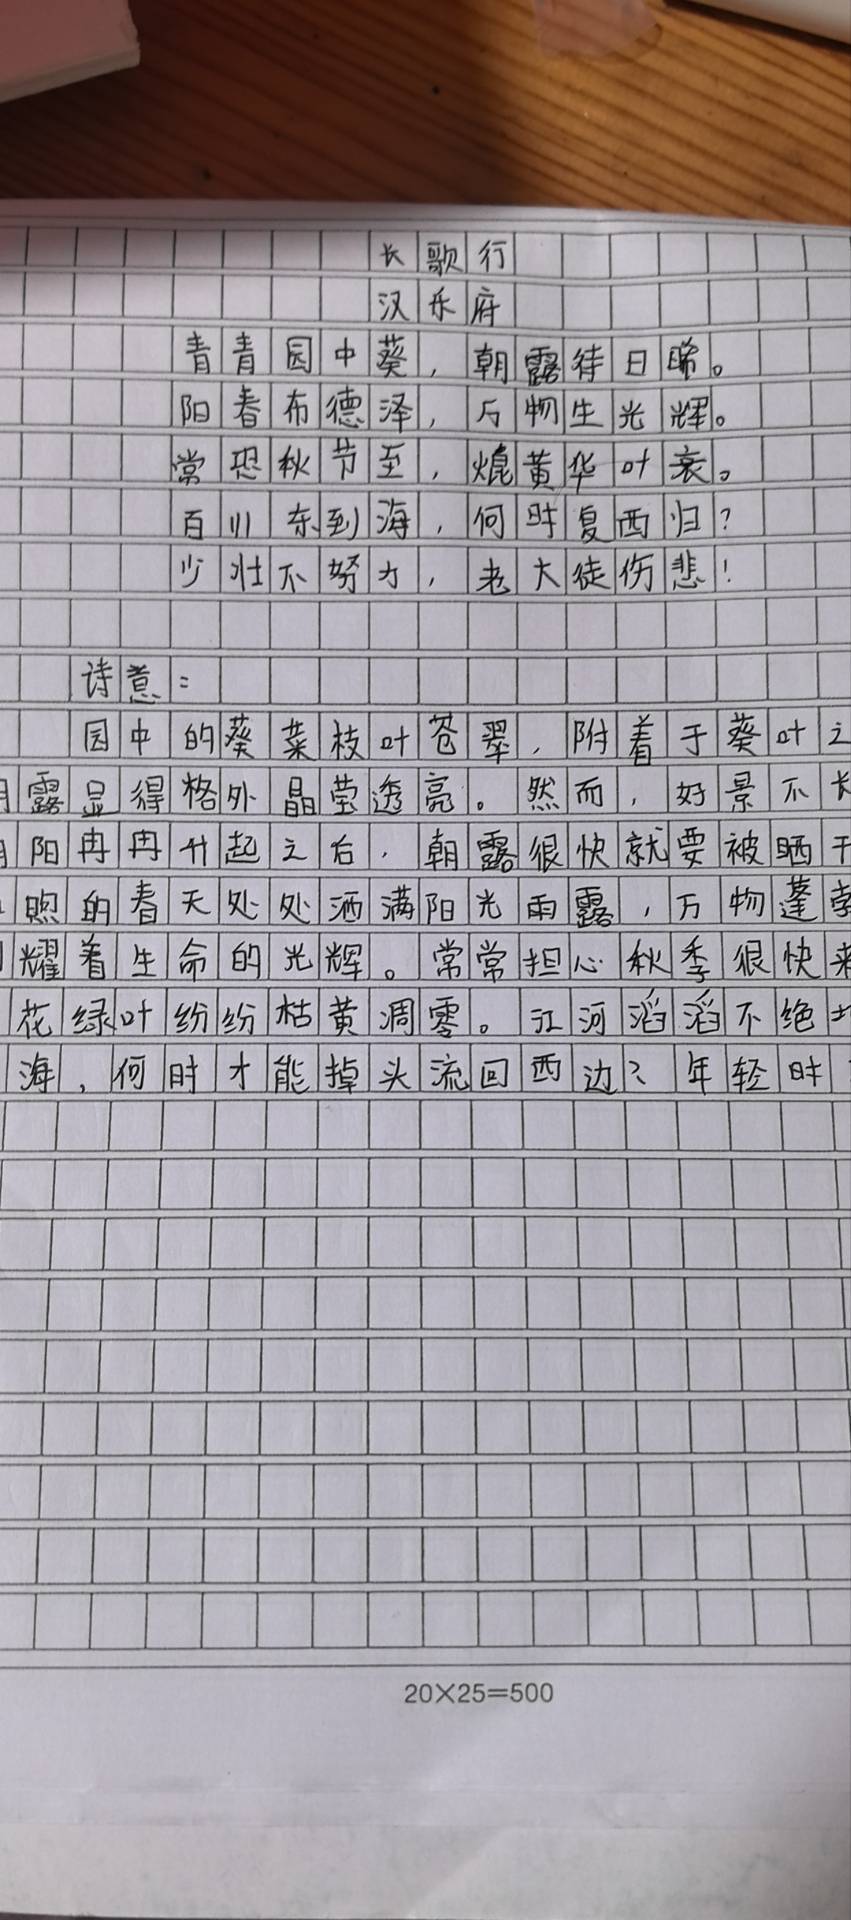 长歌行
汉乐府
青青园中葵，朝露待日晞。
阳春布德泽，万物生光辉。
常恐秋节至，焜黄华叶衰。
百川东到海，何时复西归？
少壮不努力，老大徒伤悲！
诗意：
园中的葵菜枝叶苍翠，附着于葵叶之
露显得格外晶莹透亮。然而，好景不长
阳冉冉升起之后，朝露很快就要被晒干
煦的春天处处洒满阳光雨露，万物蓬勃
耀着生命的光辉。常常担心秋季很快来
花绿叶纷纷枯黄凋零。江河滔滔不绝
海，何时才能掉头流回西边？年轻时
20×25=500